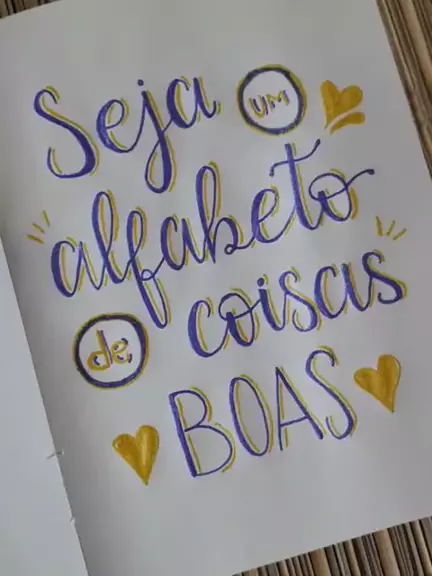 Seja UM
alfabeto
de coisas
BOAS